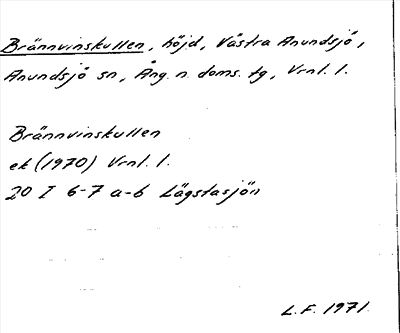 Brännvinskullen, höjd, Västra Anundsjö,
Anundsjö sn, Ång. n. doms. tg, Vrnl. l.
Brännvinskullen
ek (1970) Vrnl. l.
20 I 6-7 a-b Lägstasjön
L.F. 1971.